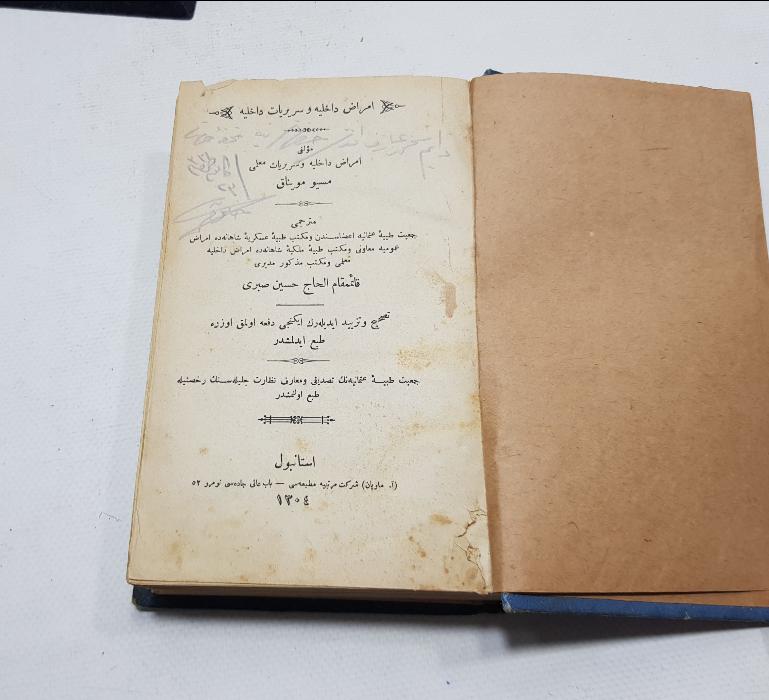 امراض داخلیه و سریریات داخلیه
مؤلفی
امراض داخلیه و سریریات معلمی
مسیو مویناق
مترجمی
جمعیت طبیهٔ عثمانیه اعضاسندن ومکتب طبیهٔ عسکریهٔ شاهانه‌ده امراض
عمومیه معاونی ومکتب طبیهٔ ملکیهٔ شاهانه‌ده امراض داخلیه
معلمی ومکتب مذکور مدیری
قائممقام الحاج حسین صبری
تصحیح وتزیید ایدیله‌رك ایکنجی دفعه اولمق اوزره
طبع ایدلمشدر
جمعیت طبیهٔ عثمانیه‌نك تصدیقی ومعارف نظارت جلیله‌سنك رخصتیله
طبع اولنمشدر
استانبول
(آ. ماویان) شرکت مرتبیه مطبعه‌سی — باب عالی جاده‌سی نومرو ٥٢
١٣٠٤